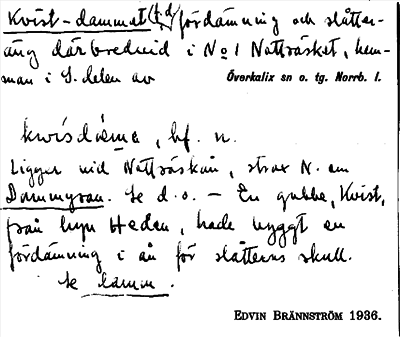 Kvist-dammet (fd) fördämning och slåtter-
äng därbredvid i No 1 Natträsket, hem-
man i S. delen av Överkalix sn o. tg. Norrb. l.
kwisdæma, bf. n.
Ligger vid Natträskån, strax N. om
Dammyran. Se d.o. – En gubbe, Kvist,
från byn Heden, hade byggt en
fördämning i ån för slåtterns skull.
Se damm.
EDVIN BRÄNNSTRÖM 1936.